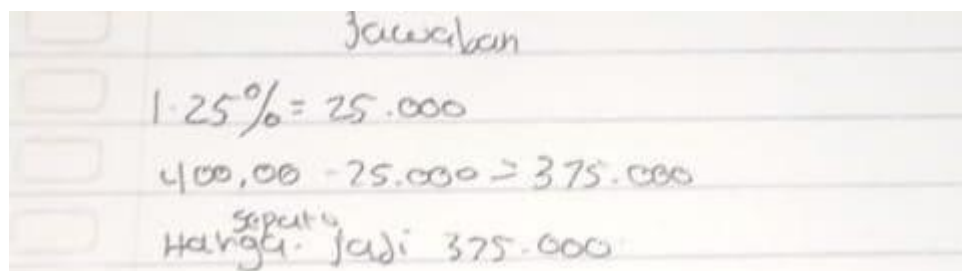 Jawaban
1. 25% = 25.000
400,00 - 25.000 = 375.000
Harga sepatu jadi 375.000